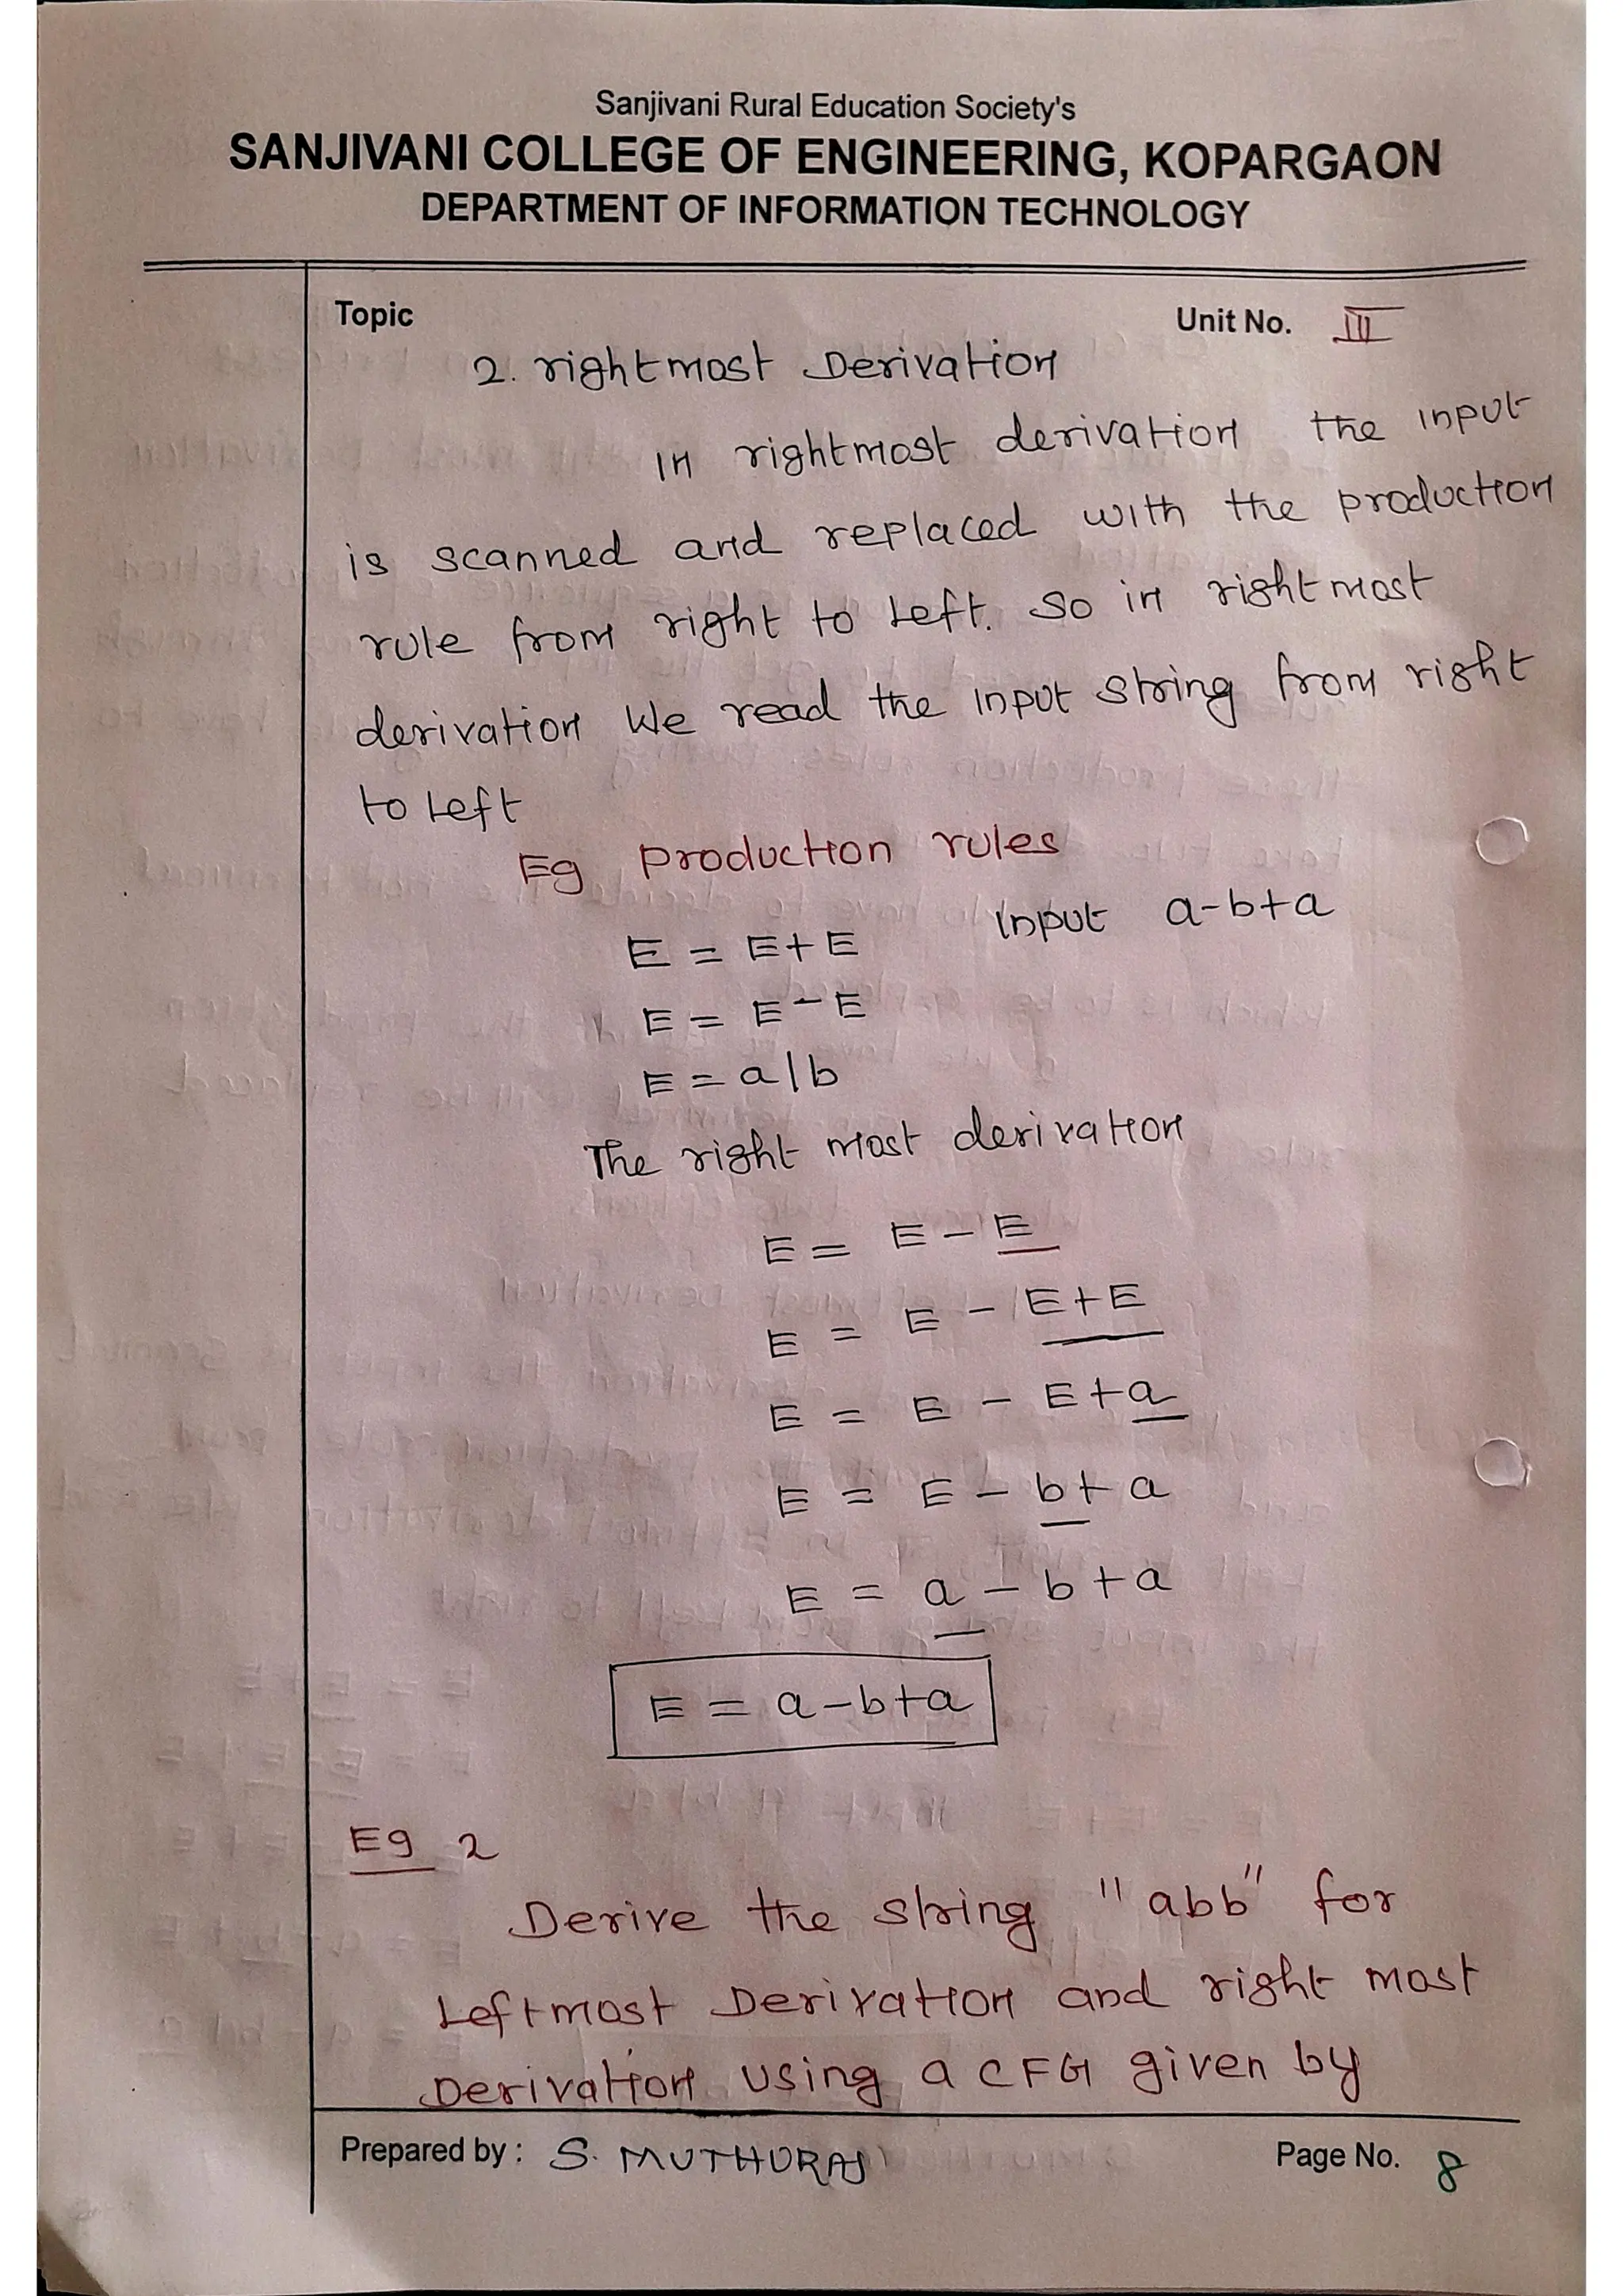 Sanjivani Rural Education Society's
SANJIVANI COLLEGE OF ENGINEERING, KOPARGAON
DEPARTMENT OF INFORMATION TECHNOLOGY
Topic Unit No. III
2. rightmost Derivation
In rightmost derivation the input
is scanned and replaced with the production
rule from right to Left. So in rightmost
derivation We read the input string from right
to Left
Eg Production rules
Input a-b+a
E = E+E
E = E-E
E = a|b
The right most derivation
E = E - E
E = E - E+E
E = E - E+a
E = E - b+a
E = a - b+a
E = a-b+a
Eg 2
Derive the string "abb" for
Leftmost Derivation and right most
Derivation using a CFG given by
Prepared by : S. MUTHURAJ Page No. 8